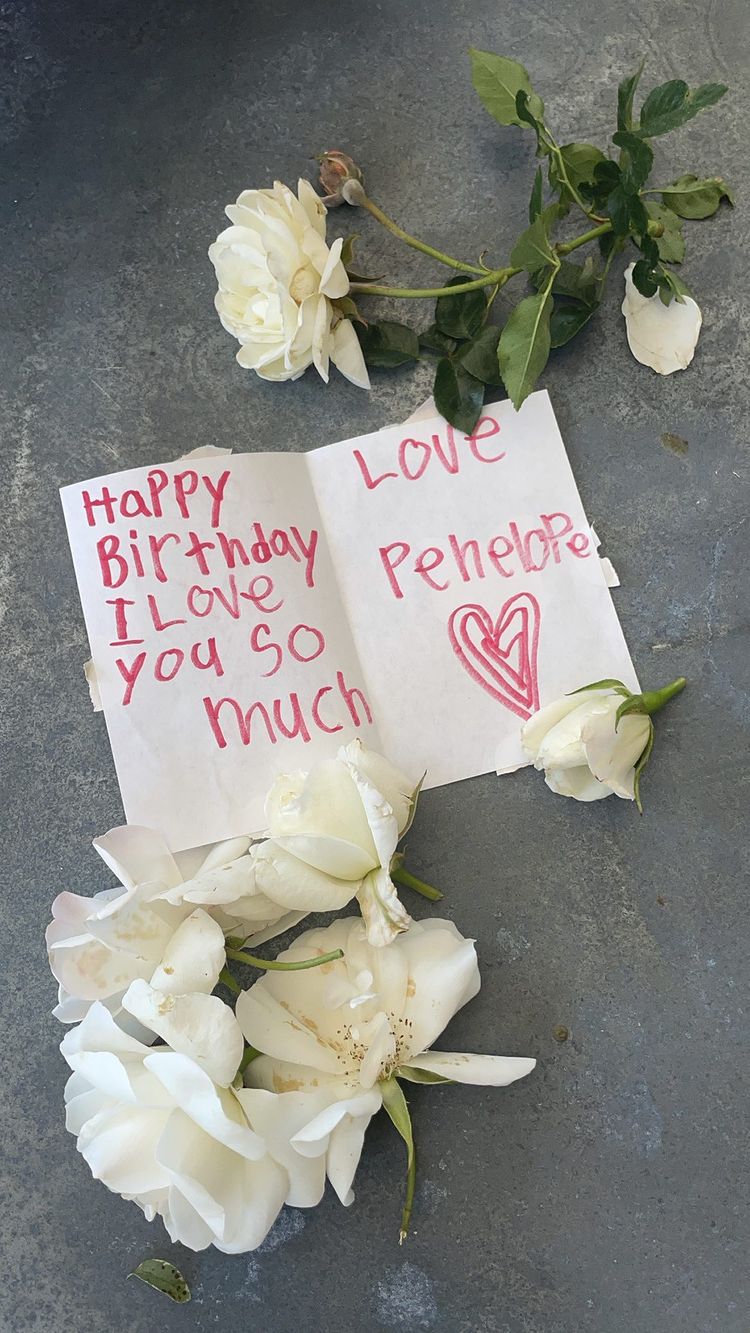 HaPPy
Birthday
I Love
you so
much
Love
PeneloPe